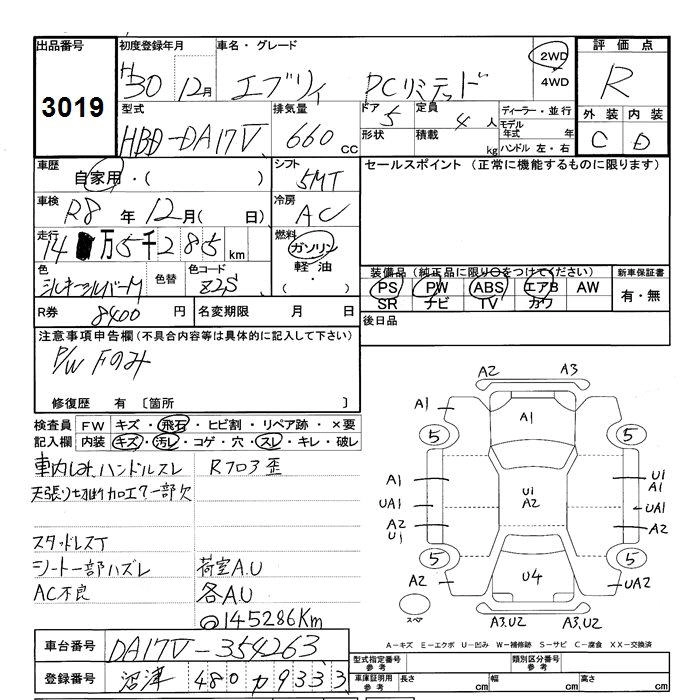 出品番号 初度登録年月 車名・グレード 2WD 4WD 評価点
3019 H30 12月 エブリィ PCリミテッド R
型式 排気量 ドア 定員 ディーラー・並行 外装 内装
HBD-DA17V 660 CC 5 4人 モデル年式 年 C D
形状 積載 kg ハンドル 左・右
車歴 シフト セールスポイント (正常に機能するものに限ります)
自家用・( ) 5MT
車検 冷房
R8年 12月( 日) AC
走行 燃料
14万5千285km ガソリン
軽油
( ・ )
色 色替 色コード 装備品 (純正品に限り○をつけてください) 新車保証書
シルキーシルバーM Z2S PS PW ABS エアB AW 有・無
SR ナビ TV カワ
R券 8400円 名変期限 月 日 後日品
注意事項申告欄(不具合内容等は具体的に記入して下さい)
P/W Fのみ
修復歴 有 〔箇所 〕
検査員 FW キズ・飛石・ヒビ割・リペア跡・×要
記入欄 内装 キズ・汚レ・コゲ・穴・スレ・キレ・破レ
車内しみ、ハンドルスレ Rフロア歪
天張り切れ 加工ワ一部欠
スタッドレスT
シート一部ハズレ 荷室A.U
AC不良 各AU
@145286Km
A2 A3
A1 A1
5 5
A1 U1 U1
A2 A1
UA1 UA1
A2 A2
U1
5 5
A2 U4 UA2
スペア A3.U2 A3.U2
A-キズ E-エクボ U-凹み W-補修跡 S-サビ C-腐食 XX-交換済
車台番号 DA17V-354263 型式指定番号 参考 類別区分番号 参考
登録番号 沼津 480 カ 9333 車庫証明用 参考 長さ cm 幅 cm 高さ cm